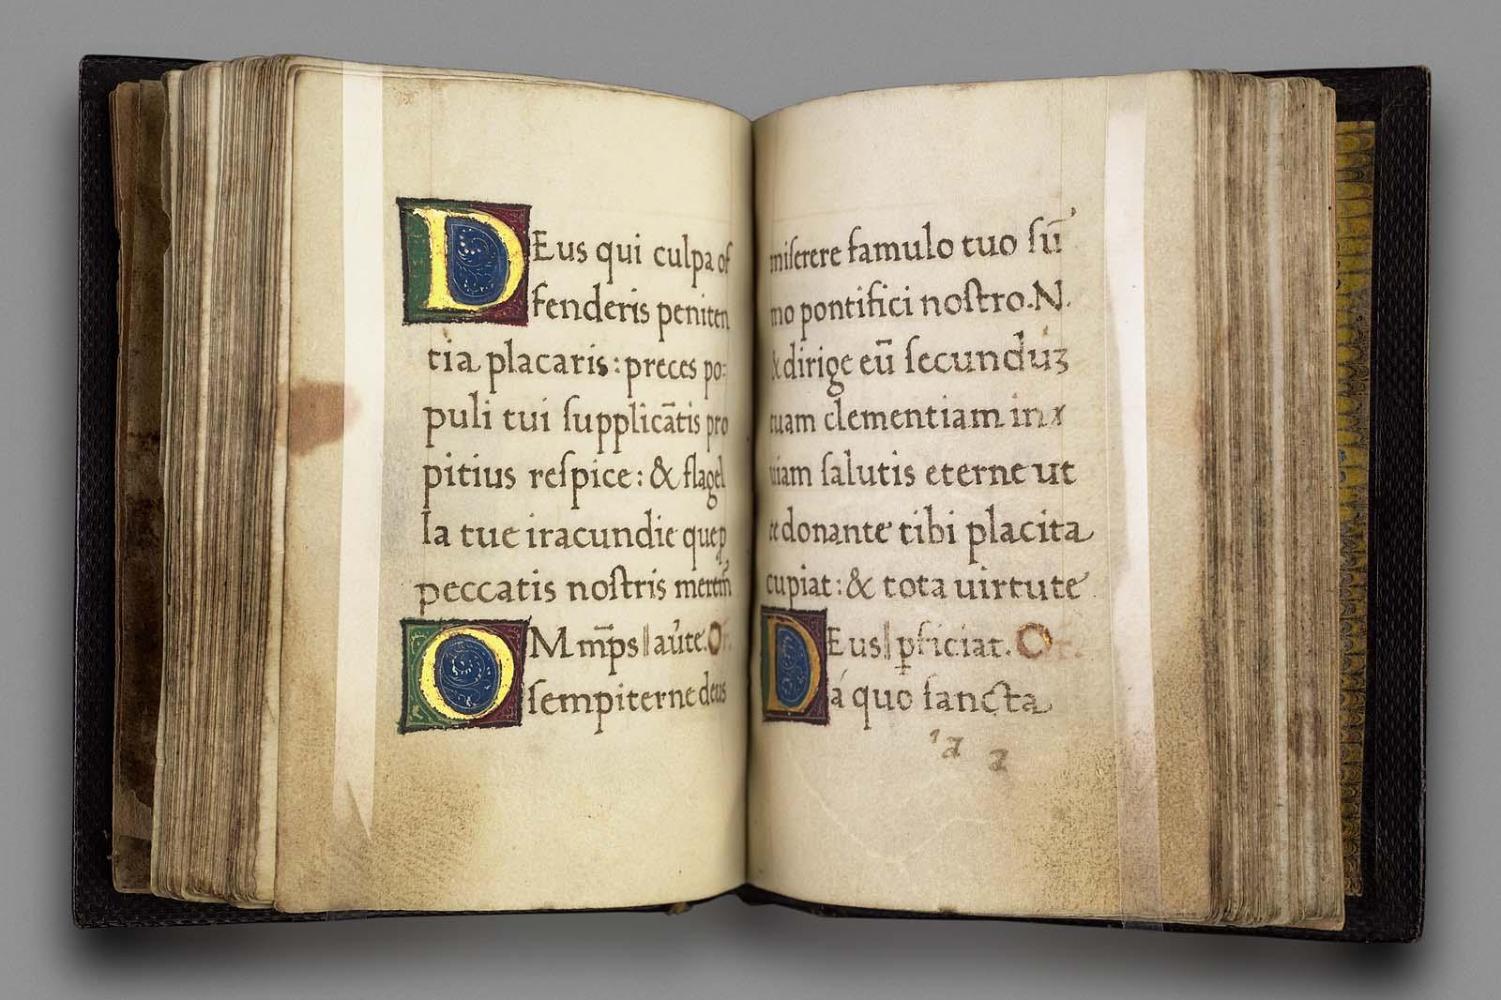 DEus qui culpa of
fenderis peniten
tia placaris: preces po:
puli tui ſupplicātis pro
pitius reſpice: & flagel
la tue iracundie que ꝓ
peccatis noſtris meremᷣ
OM mp̄s aūte. Or.
ſempiterne deus
miſerere famulo tuo ſū
mo pontifici noſtro. N.
& dirige eū ſecunduꝫ
tuam clementiam in
uiam ſalutis eterne ut
te donante tibi placita
cupiat: & tota uirtute
DEus ꝑficiat. Or.
á quo ſancta